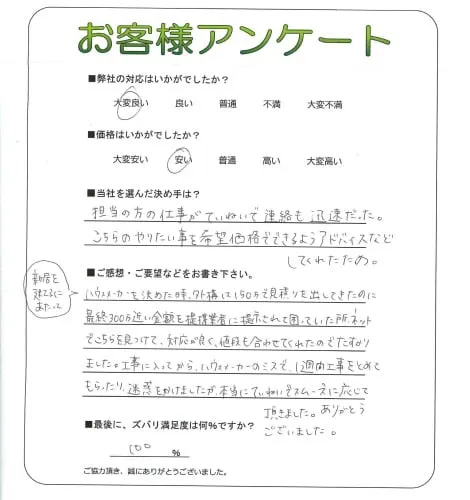 お客様アンケート
■弊社の対応はいかがでしたか？
大変良い 良い 普通 不満 大変不満
■価格はいかがでしたか？
大変安い 安い 普通 高い 大変高い
■当社を選んだ決め手は？
担当の方の仕事がていねいで連絡も迅速だった。
こちらのやりたい事を希望価格でできるようアドバイスなど
してくれたため。
新居を
建てるに
あたって
■ご感想・ご要望などをお書き下さい。
ハウスメーカーを決めた時、外構は150万で見積りを出してきたのに
最終300万近い金額を提携業者に提示されて困っていた所、ネット
でこちらを見つけて、対応が良く、値段も合わせてくれたのでたすかり
ました。工事に入ってから、ハウスメーカーのミスで、1週間工事をとめて
もらったり、迷惑をかけましたが、本当にていねいでスムーズに応じて
頂きました。ありがとう
ございました。
■最後に、ズバリ満足度は何％ですか？
100 ％
ご協力頂き、誠にありがとうございました。